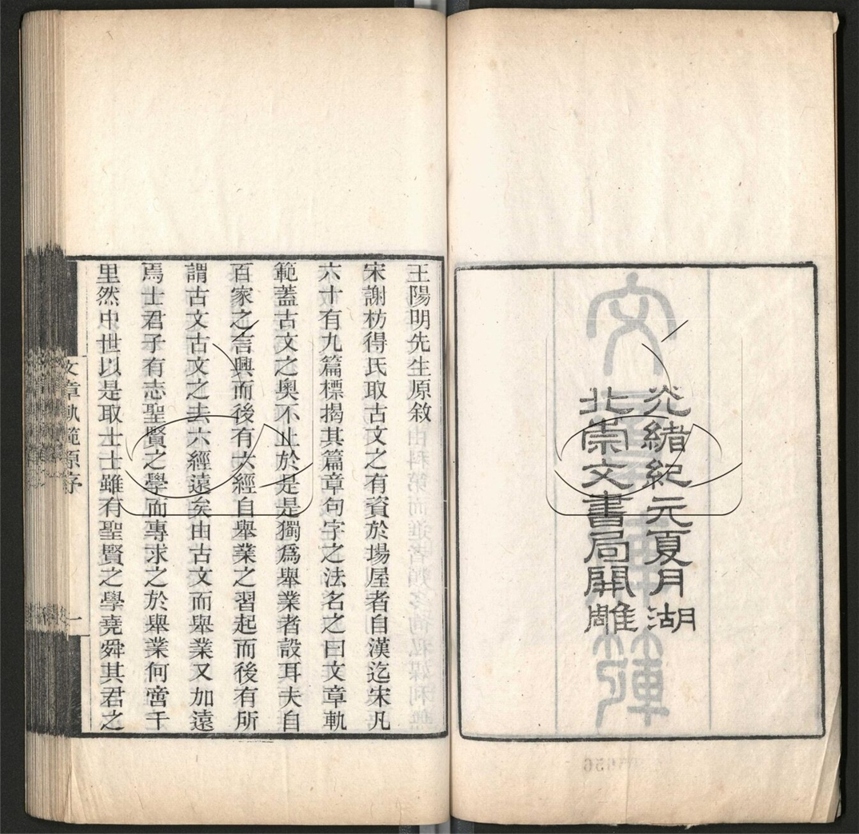 光緒紀元夏月湖
北崇文書局開雕
王陽明先生原敘
宋謝枋得氏取古文之有資於場屋者自漢迄宋凡
六十有九篇標揭其篇章句字之法名之曰文章軌
範蓋古文之奧不止於是是獨爲舉業者設耳夫自
百家之言興而後有六經自舉業之習起而後有所
謂古文古文之去六經遠矣由古文而舉業又加遠
焉士君子有志聖賢之學而專求之於舉業何啻千
里然中世以是取士士雖有聖賢之學堯舜其君之
文章軌範原序
一